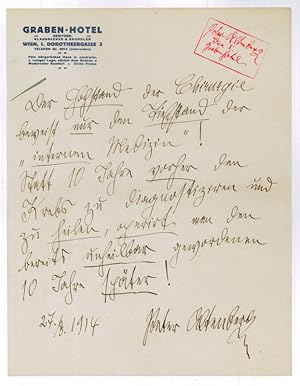 GRABEN-HOTEL
BESITZER:
KLAUSBECKER & GRUNDLER
WIEN, I. DOROTHEERGASSE 3
Peter Altenberg
Der Hochstand der Chirurgie
beweist nur den Tiefstand der
„internen Medizin"!
Statt 10 Jahre vorher den
Krebs zu diagnostizieren und
zu heilen, operirt man den
bereits unheilbar gewordenen
10 Jahre später!
1914
Peter Altenberg